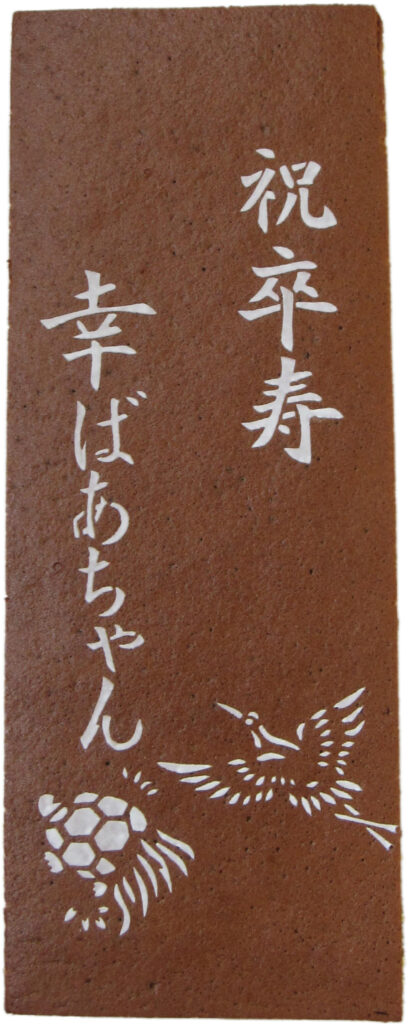 祝卒寿
幸ばあちゃん